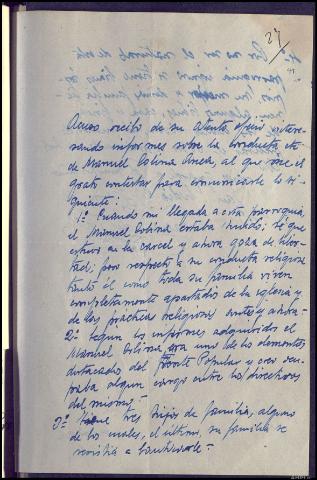 27
Acuso recibo de su atento oficio intere-
sando informes sobre la conducta etc
de Manuel Colina al que me es
grato contestar para comunicarle lo si-
guiente:
1º Cuando mi llegada a esta parroquia,
el Manuel Colina estaba huido; sé que
estuvo en la carcel y ahora goza de liber-
tad; por respecto a su conducta religiosa
tanto él como toda su familia viven
completamente apartados de la iglesia y
de las prácticas religiosas antes y ahora.-
2º Segun los informes adquiridos el
Manuel Colina era uno de los elementos
destacados del Frente Popular y creo ocu-
paba algun cargo entre los directivos
del mismo.-
3º Tiene tres hijos de familia, alguno
de los cuales, el último, su familia se
resistia a bautizarle.-